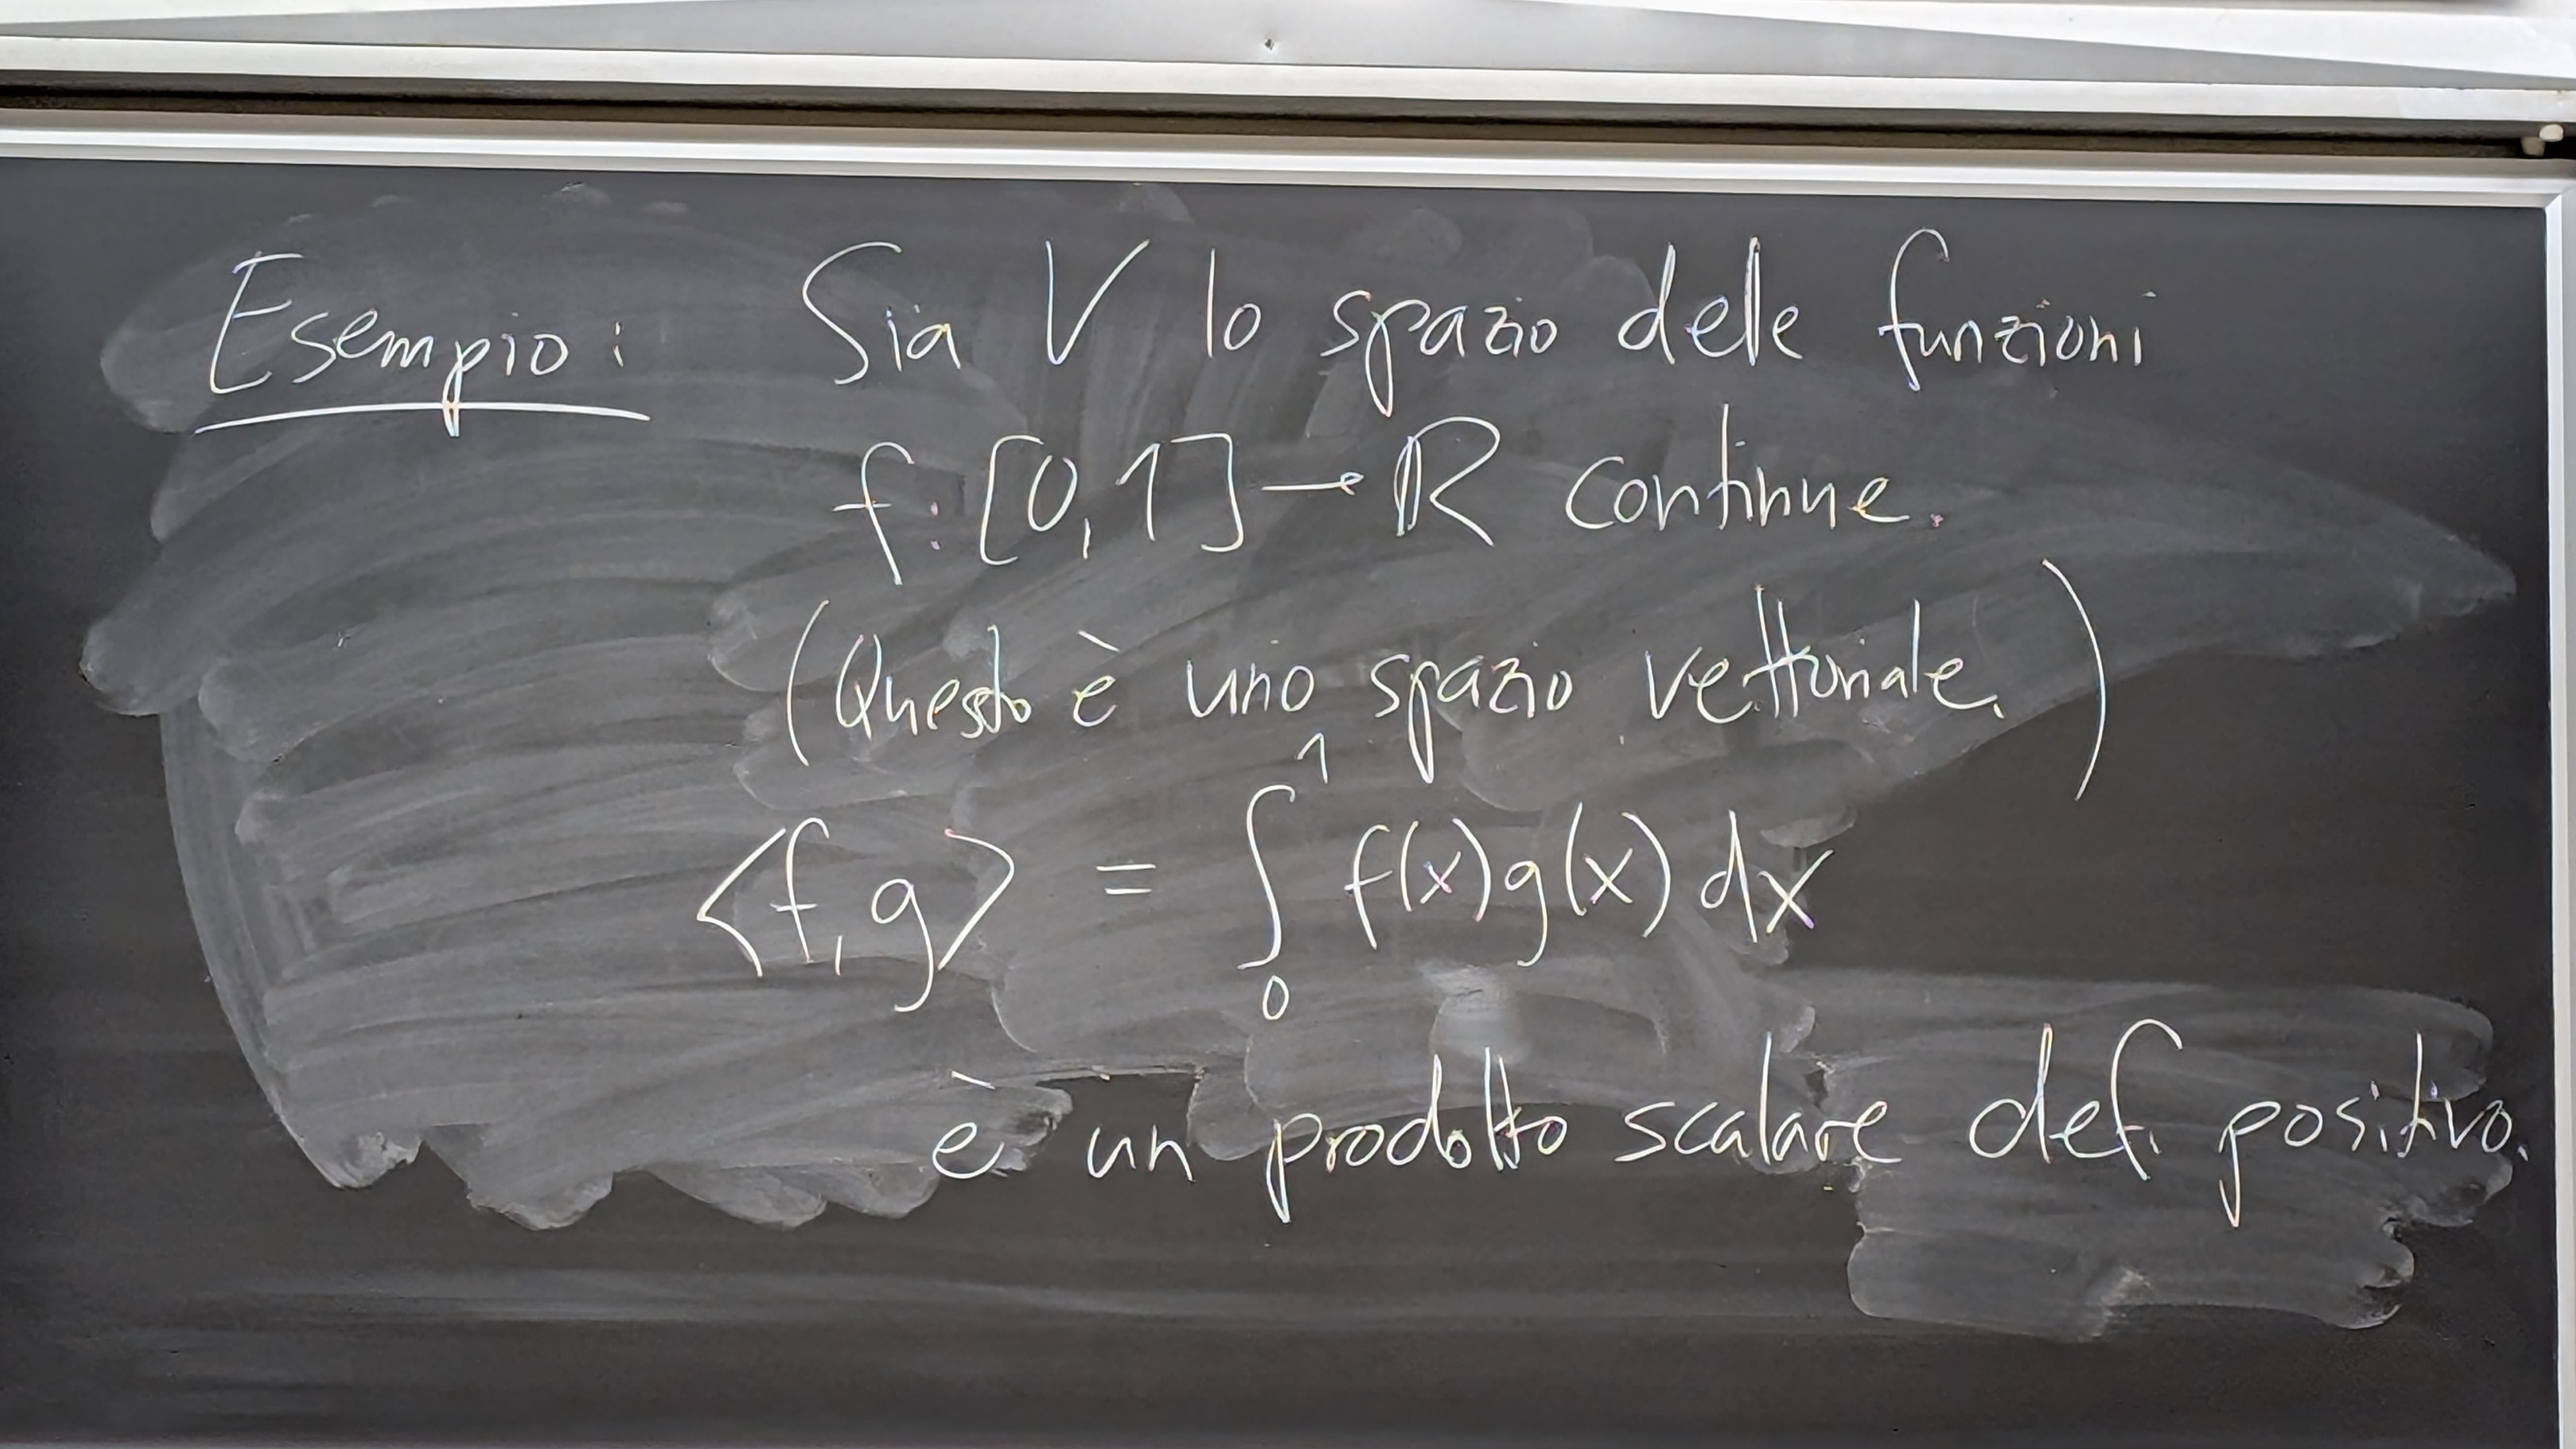 Esempio: Sia V lo spazio delle funzioni
f: [0,1] → ℝ continue.
(Questo è uno spazio vettoriale.)
<f,g> = ∫₀¹ f(x)g(x) dx
è un prodotto scalare def. positivo.